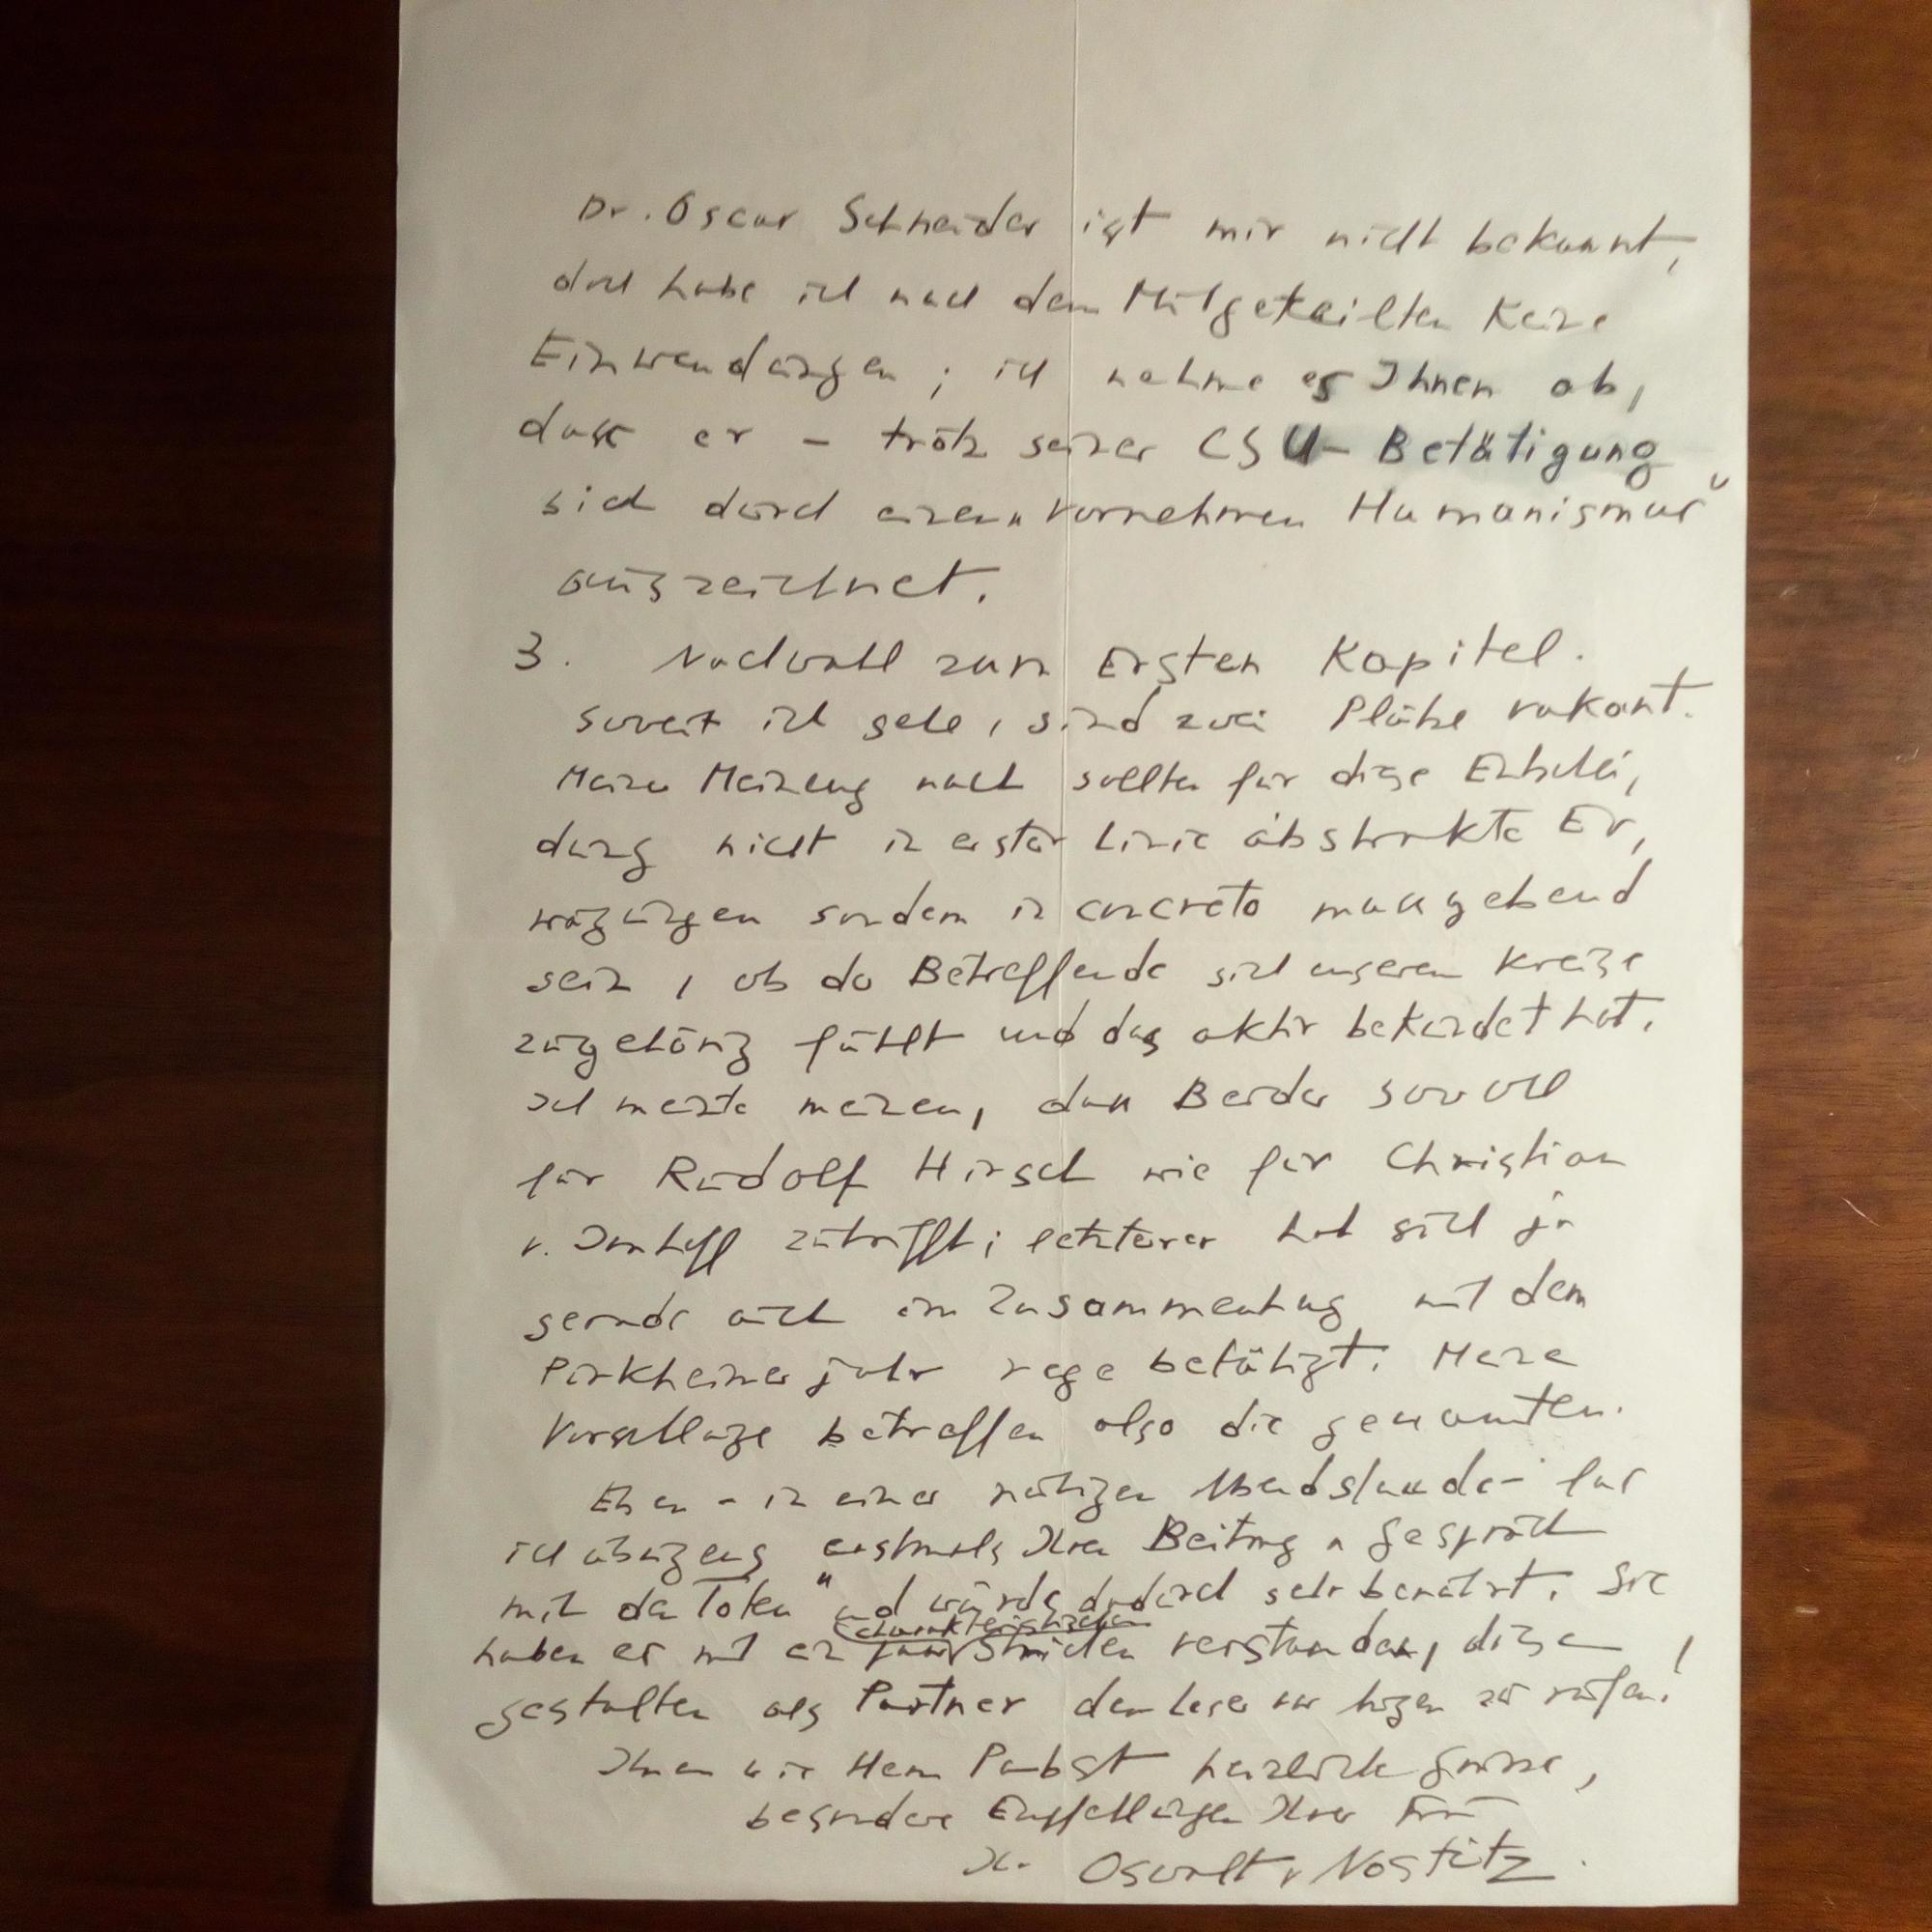 Dr. Oscar Schneider ist mir nicht bekannt,
doch habe ich nach dem Mitgeteilten keine
Einwendungen; ich nehme es Ihnen ab,
dass er – trotz seiner CSU-Betätigung
sich durch einen „vornehmen Humanismus“
auszeichnet.
3. Nachwahl zum Ersten Kapitel.
Soweit ich sehe, sind zwei Plätze vakant.
Meiner Meinung nach sollten für diese Entschei-
dung nicht in erster Linie abstrakte Er-
wägungen sondern in concreto massgebend
sein, ob der Betreffende sich unserem Kreise
zugehörig fühlt und das aktiv bekundet hat.
Ich meinen, dass Beides sowohl
für Rudolf Hirsch wie für Christian
v. Imhoff zutrifft; letzterer hat sich ja
gerade auch im Zusammenhang mit dem
Pirkheimerjahr rege betätigt. Meine
Vorschläge betreffen also die genannten.
Eben – in einer ruhigen Abendstunde – las
ich übrigens erstmals Ihren Beitrag „Gespräch
mit den Toten“ und wurde dadurch sehr berührt. Sie
charakteristischen
haben es mit ein paar Strichen verstanden, diese
Gestalten als Partner dem Leser vor Augen zu rufen!
Ihnen wie Herrn Pabst herzliche Grüsse,
besondere Empfehlungen Ihrer Frau
Ihr Oswalt v Nostitz.